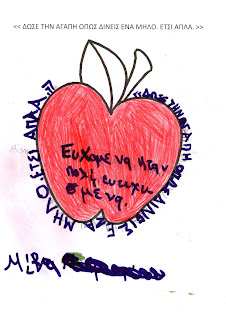 << ΔΩΣΕ ΤΗΝ ΑΓΑΠΗ ΟΠΩΣ ΔΙΝΕΙΣ ΕΝΑ ΜΗΛΟ. ΕΤΣΙ ΑΠΛΑ. >>
<<ΔΩΣΕ ΤΗΝ ΑΓΑΠΗ ΟΠΩΣ ΔΙΝΕΙΣ ΕΝΑ ΜΗΛΟ. ΕΤΣΙ ΑΠΛΑ.>>
Ευχομε να ηταν
πολη ευτυχι
σμενα.
Μίνα